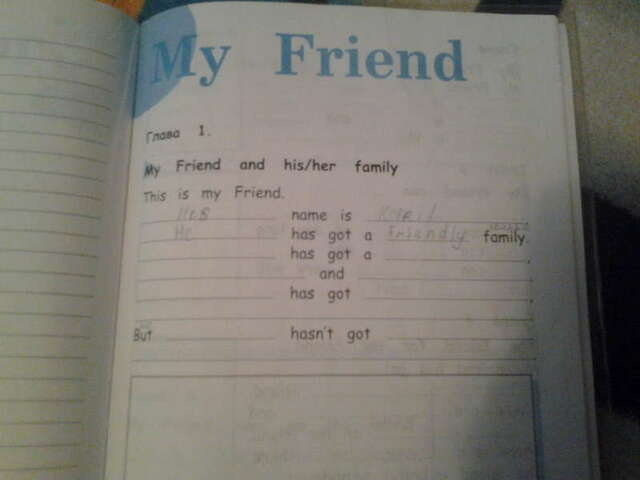 My Friend
Глава 1.
My Friend and his/her family
This is my Friend.
name is
He has got a friendly family.
has got a
and
has got
But hasn't got